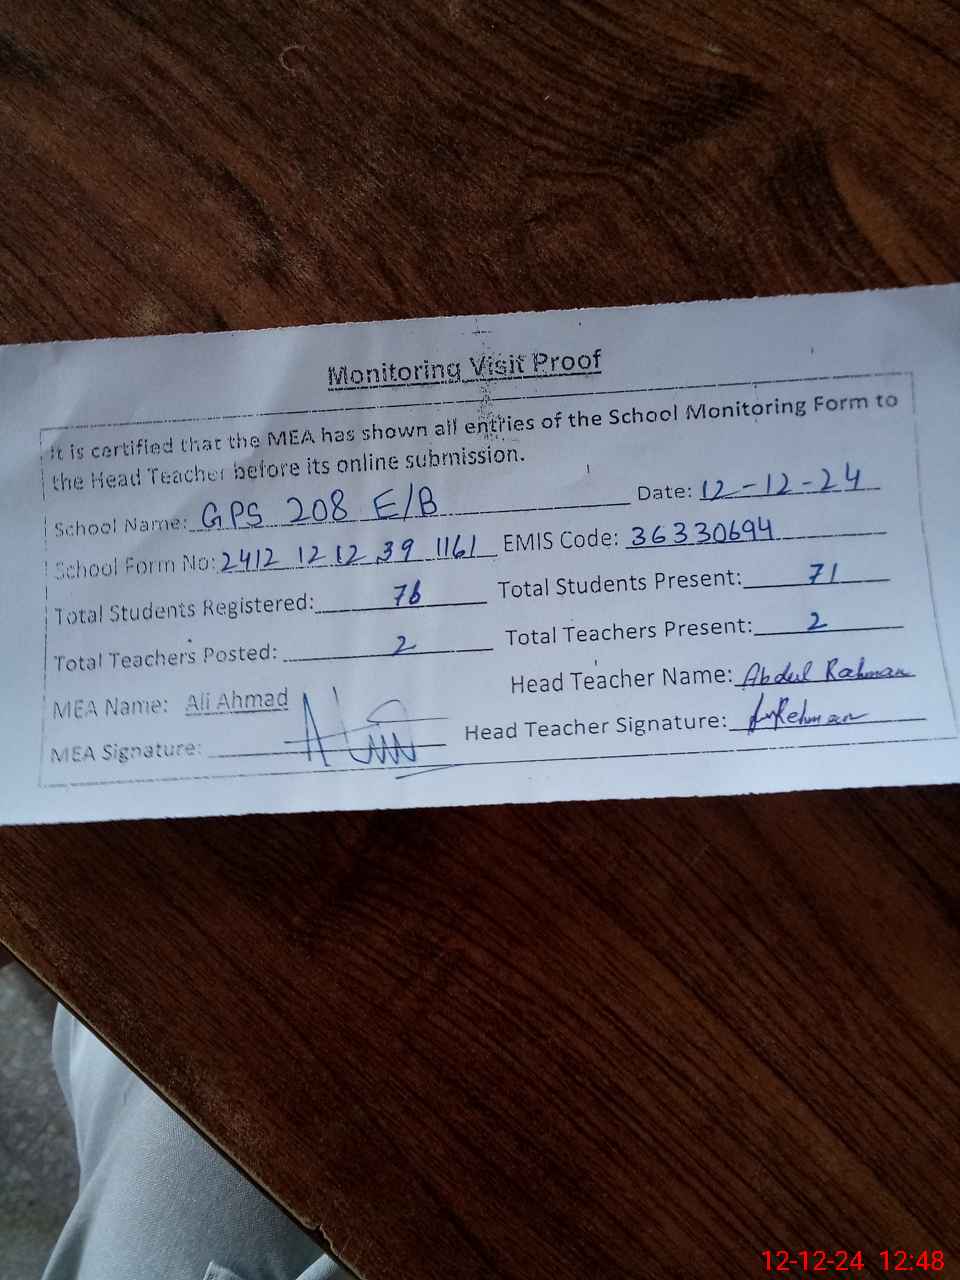 Monitoring Visit Proof
It is certified that the MEA has shown all entries of the School Monitoring Form to
the Head Teacher before its online submission.
School Name: GPS 208 E/B Date: 12-12-24
School Form No: 2412 12 12 39 1161 EMIS Code: 36330694
Total Students Registered: 76 Total Students Present: 71
Total Teachers Posted: 2 Total Teachers Present: 2
MEA Name: Ali Ahmad Head Teacher Name: Abdul Rahman
MEA Signature: Head Teacher Signature: Rehman
12-12-24 12:48